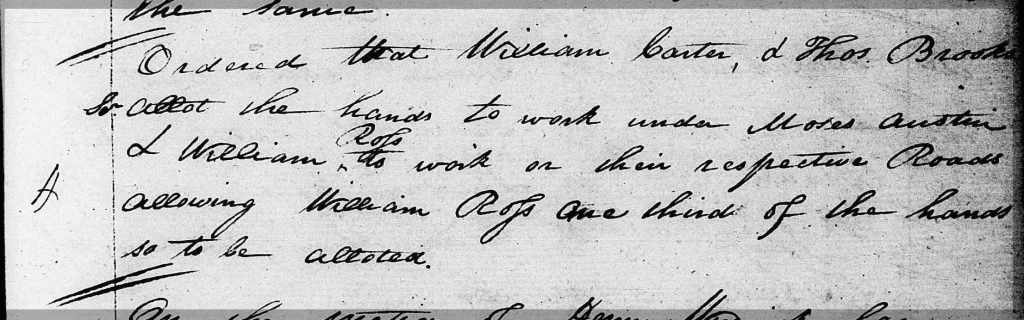 the same.
Ordered that William Carter, & Thos. Brooks
allot the hands to work under Moses Austin
& William Ross to work on their respective Roads
allowing William Ross one third of the hands
so to be alloted.
On the motion of